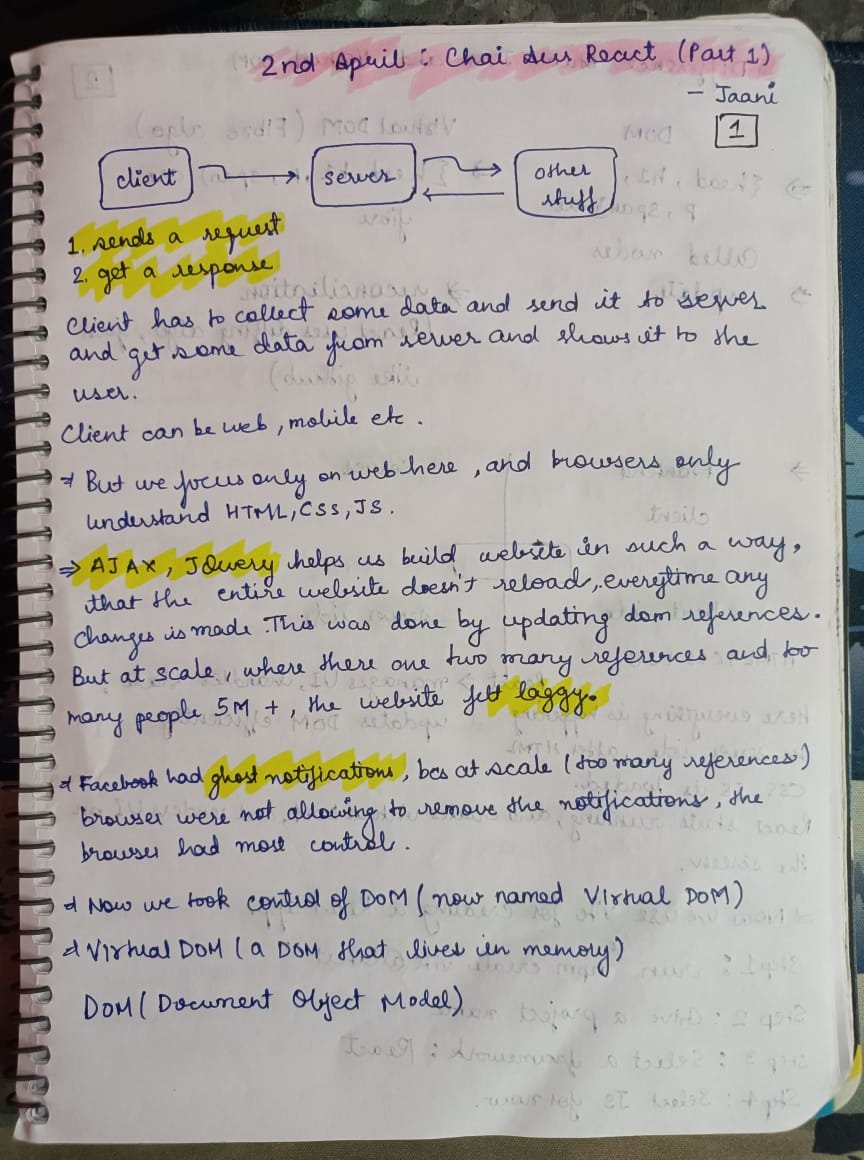 2nd April : Chai aur React (Part 1)
- Jaani
1
client
server
other
stuff
1. sends a request
2. get a response
Client has to collect some data and send it to server
and get some data from server and shows it to the
user.
Client can be web, mobile etc.
⇒ But we focus only on web here, and browsers only
understand HTML, CSS, JS.
⇒ AJAX, JQuery helps us build website in such a way,
that the entire website doesn't reload, everytime any
changes is made. This was done by updating dom references.
But at scale, where there are two many references and too
many people 5M +, the website felt laggy.
⇒ Facebook had ghost notifications, bcs at scale (too many references)
browser were not allowing to remove the notifications, the
browser had most control.
⇒ Now we took control of DOM (now named Virtual DOM)
⇒ Virtual DOM (a DOM that lives in memory)
DOM (Document Object Model)